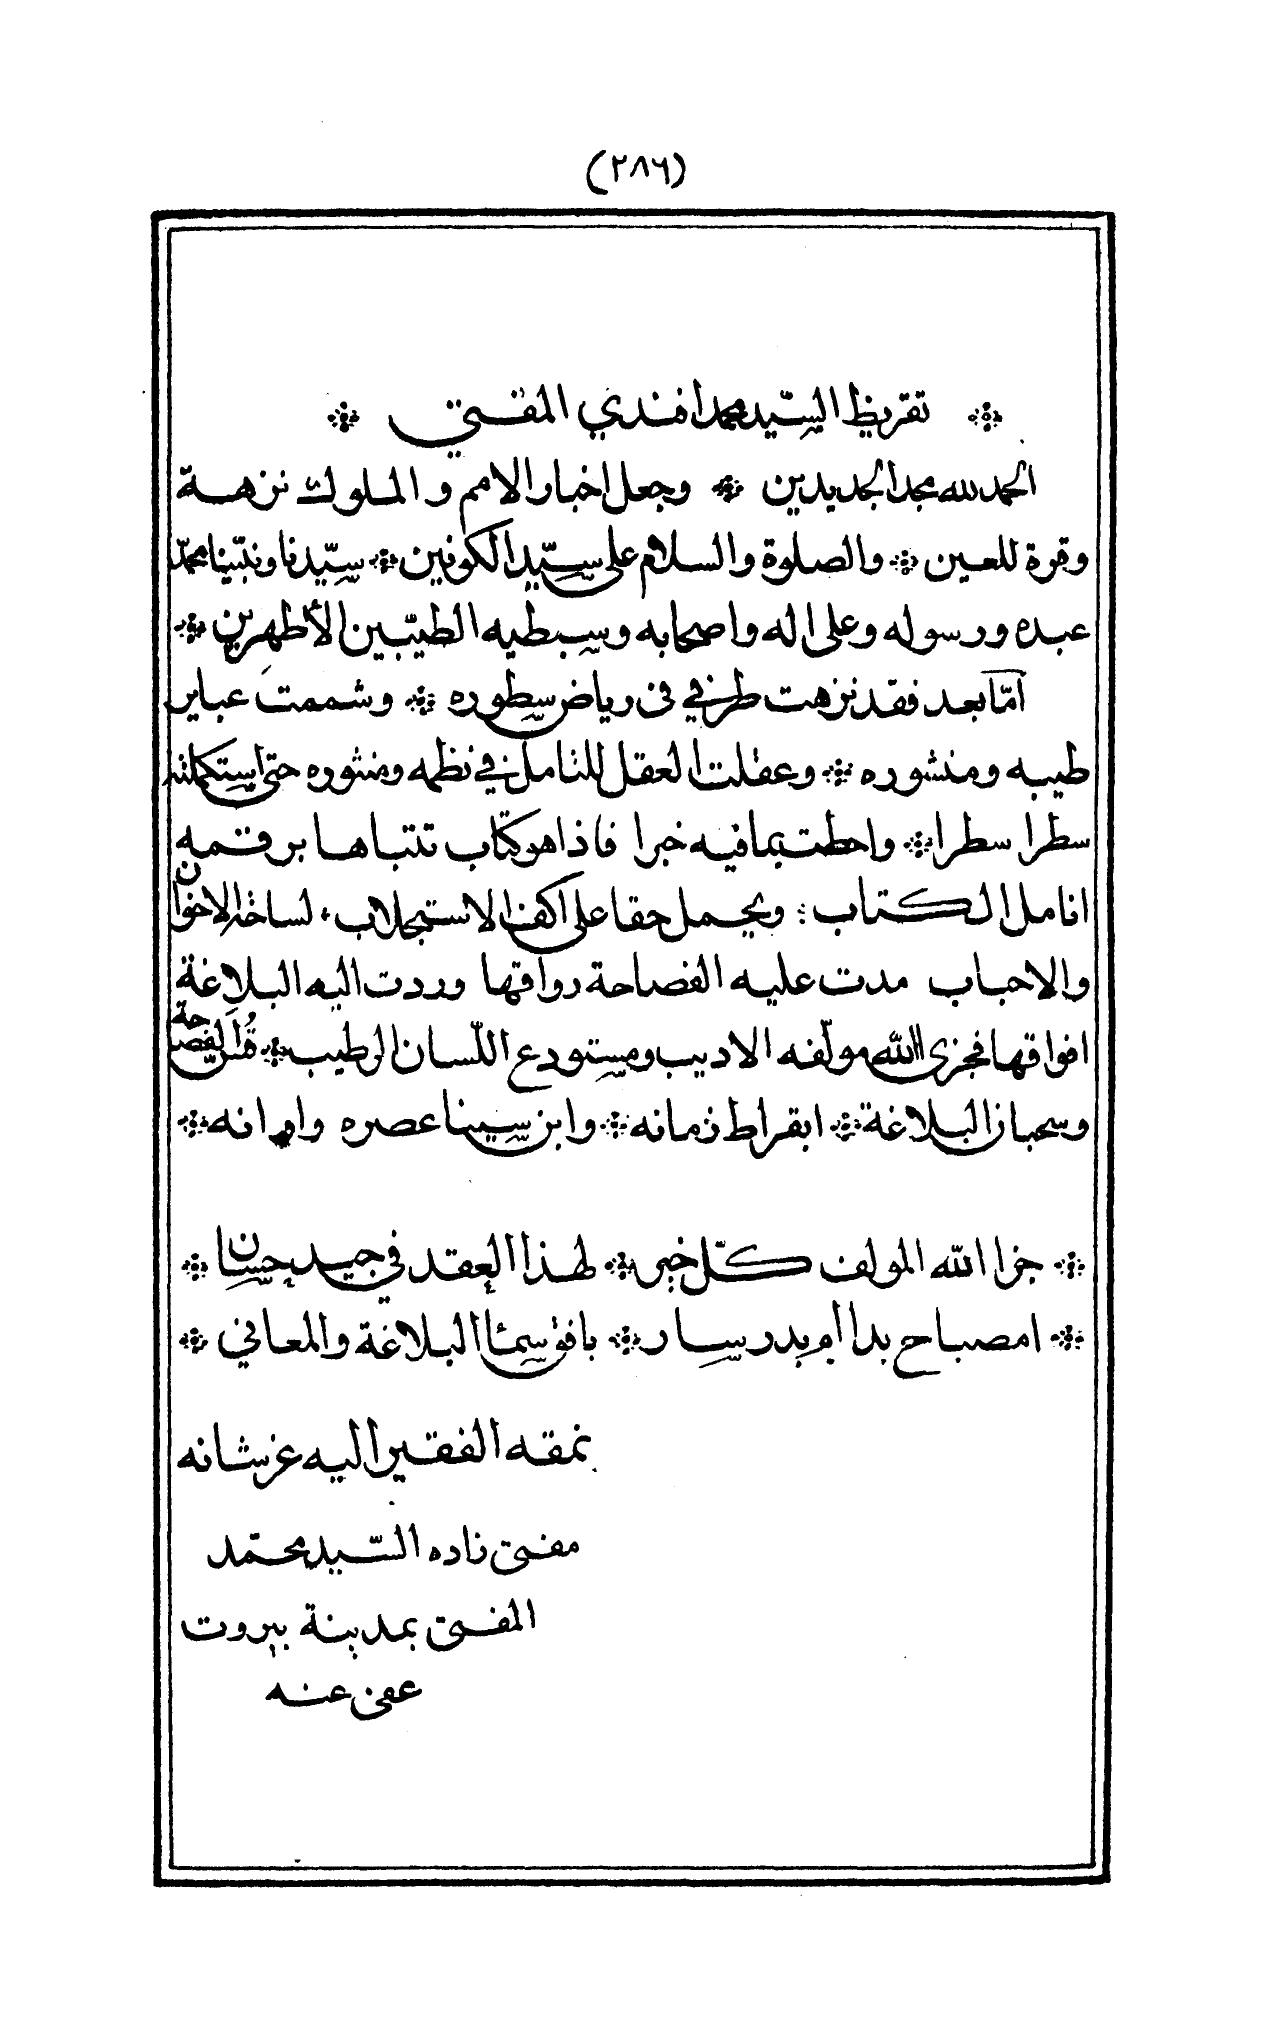 (٢٨٦)
❊ تقريظ السيّد محمد افندي المفتي ❊
الحمد لله مجد الجديدين ❊ وجعل اخبار الامم والملوك نزهة
وقرة للعين ❊ والصلوة والسلام على سيّد الكونين ❊ سيّدنا ونبيّنا محمّد
عبده ورسوله وعلى اله واصحابه وسبطيه الطيّبين الأطهرين ❊
امّا بعد فقد نزهت طرفي فى رياض سطوره ❊ وشممت عباير
طيبه ومنشوره ❊ وعقلت العقل للتامل في نظمه ومنثوره حتى استكملته
سطرا سطرا ❊ واحطت بما فيه خبرا فاذا هو كتاب تتباها برقمه
انامل الكتاب ؛ ويحمل حقا على اكف الاستجلاب، لساخة الاخوان
والاحباب مدت عليه الفصاحة رواقها وردت اليه البلاغة
افواقها فجزى الله مولّفه الاديب ومستودع اللّسان الرطيب ❊ قُسّ الفصاحة
وسحبان البلاغة ❊ ابقراط زمانه ❊ وابن سينا عصره واوانه ❊
❊ جزا الله المولف كلّ خير ❊ لهذا العقد في جيد حسان ❊
❊ امصباح بدا أم بدر سار ❊ بافق سما البلاغة والمعاني ❊
نمقه الفقير اليه عز شانه
مفتى زاده السّيد محمّد
المفتى بمدينة بيروت
عفى عنه